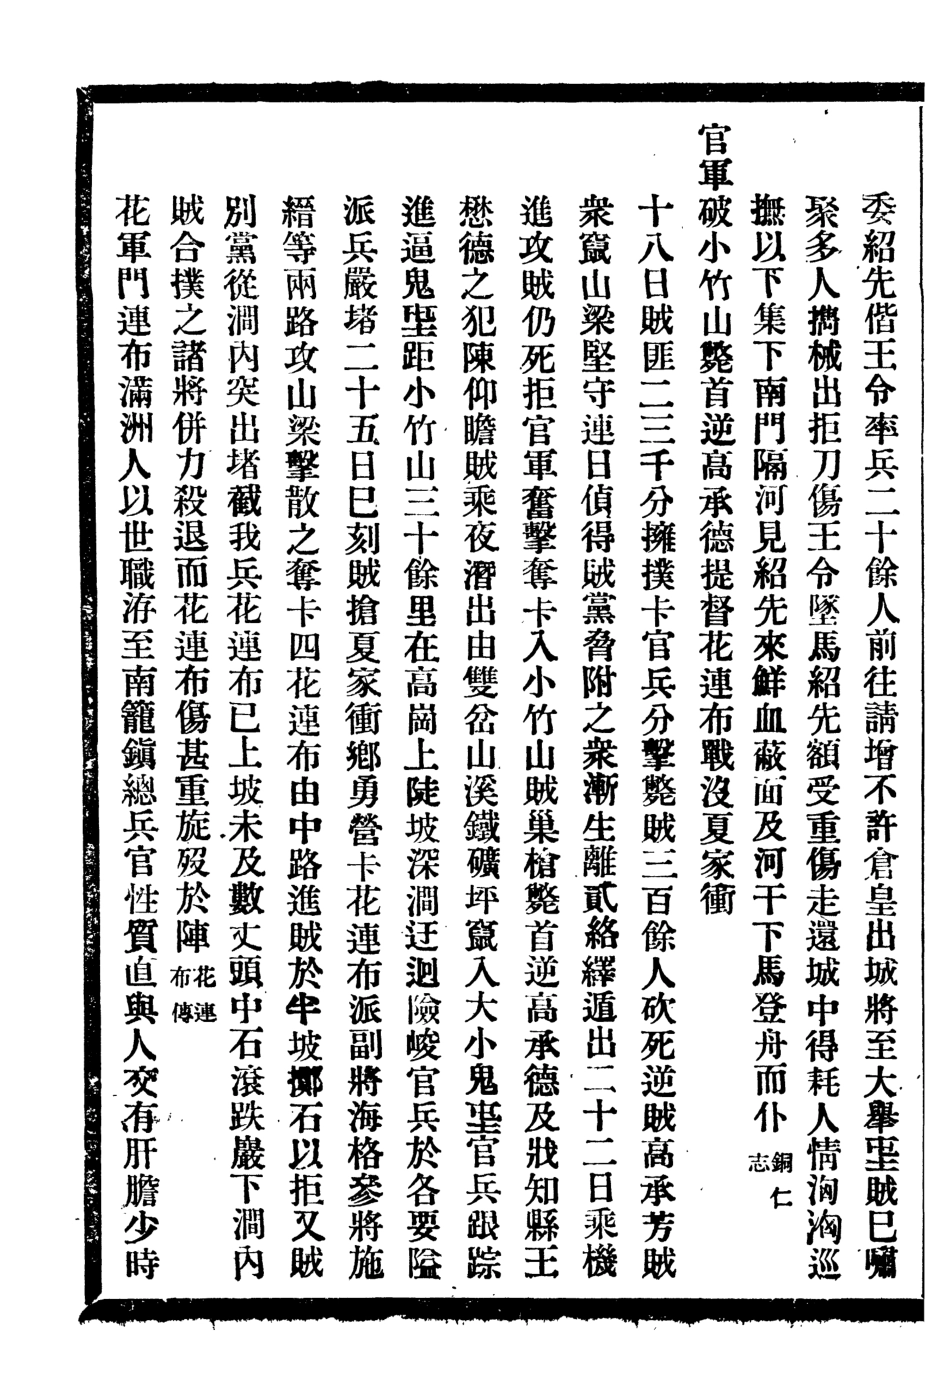 委紹先偕王令率兵二十餘人前往請增不許倉皇出城將至大舉坉賊已嘯
聚多人擕械出拒刀傷王令墜馬紹先額受重傷走還城中得耗人情洶洶巡
撫以下集下南門隔河見紹先來鮮血蔽面及河干下馬登舟而仆銅仁志
官軍破小竹山斃首逆高承德提督花連布戰沒夏家衝
十八日賊匪二三千分擁撲卡官兵分擊斃賊三百餘人砍死逆賊高承芳賊
衆竄山梁堅守連日偵得賊黨脅附之衆漸生離貳絡繹遁出二十二日乘機
進攻賊仍死拒官軍奮擊奪卡入小竹山賊巢槍斃首逆高承德及戕知縣王
懋德之犯陳仰瞻賊乘夜潛出由雙岔山溪鐵礦坪竄入大小鬼坉官兵跟踪
進逼鬼坉距小竹山三十餘里在高崗上陡坡深澗迂迴險峻官兵於各要隘
派兵嚴堵二十五日巳刻賊搶夏家衝鄉勇營卡花連布派副將海格參將施
縉等兩路攻山梁擊散之奪卡四花連布由中路進賊於半坡擲石以拒又賊
別黨從澗內突出堵截我兵花連布已上坡未及數丈頭中石滾跌巖下澗內
賊合撲之諸將併力殺退而花連布傷甚重旋歿於陣花連布傳
花軍門連布滿洲人以世職洊至南籠鎭總兵官性質直與人交有肝膽少時